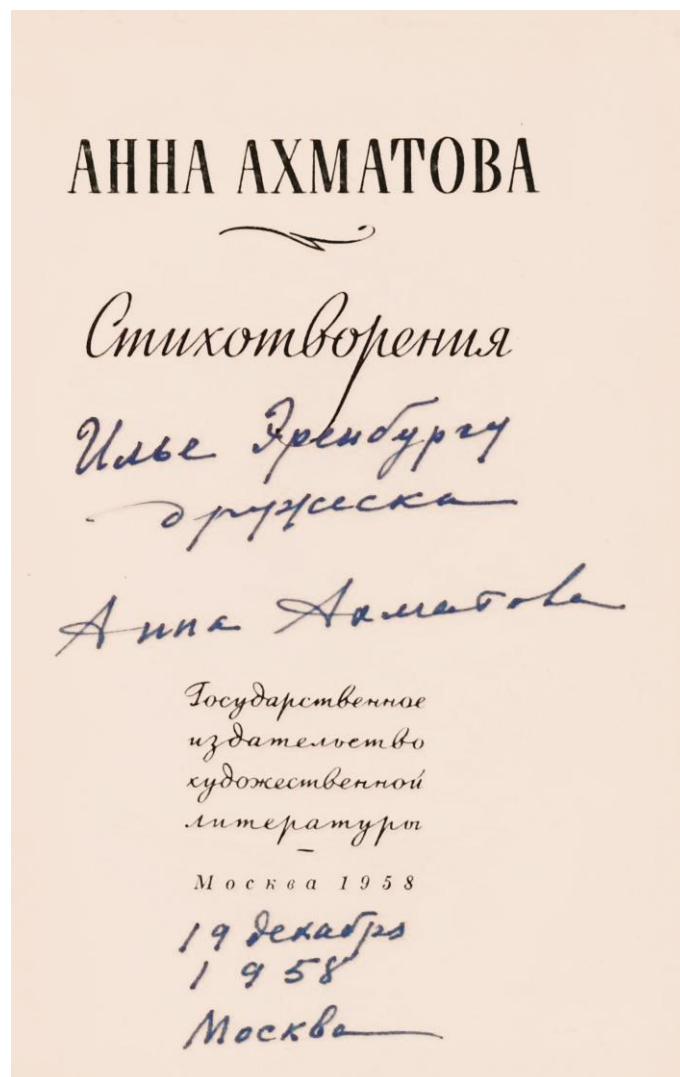 АННА АХМАТОВА
Стихотворения
Илье Эренбургу
дружески
Анна Ахматова
Государственное
издательство
художественной
литературы
Москва 1958
19 декабря
1958
Москва